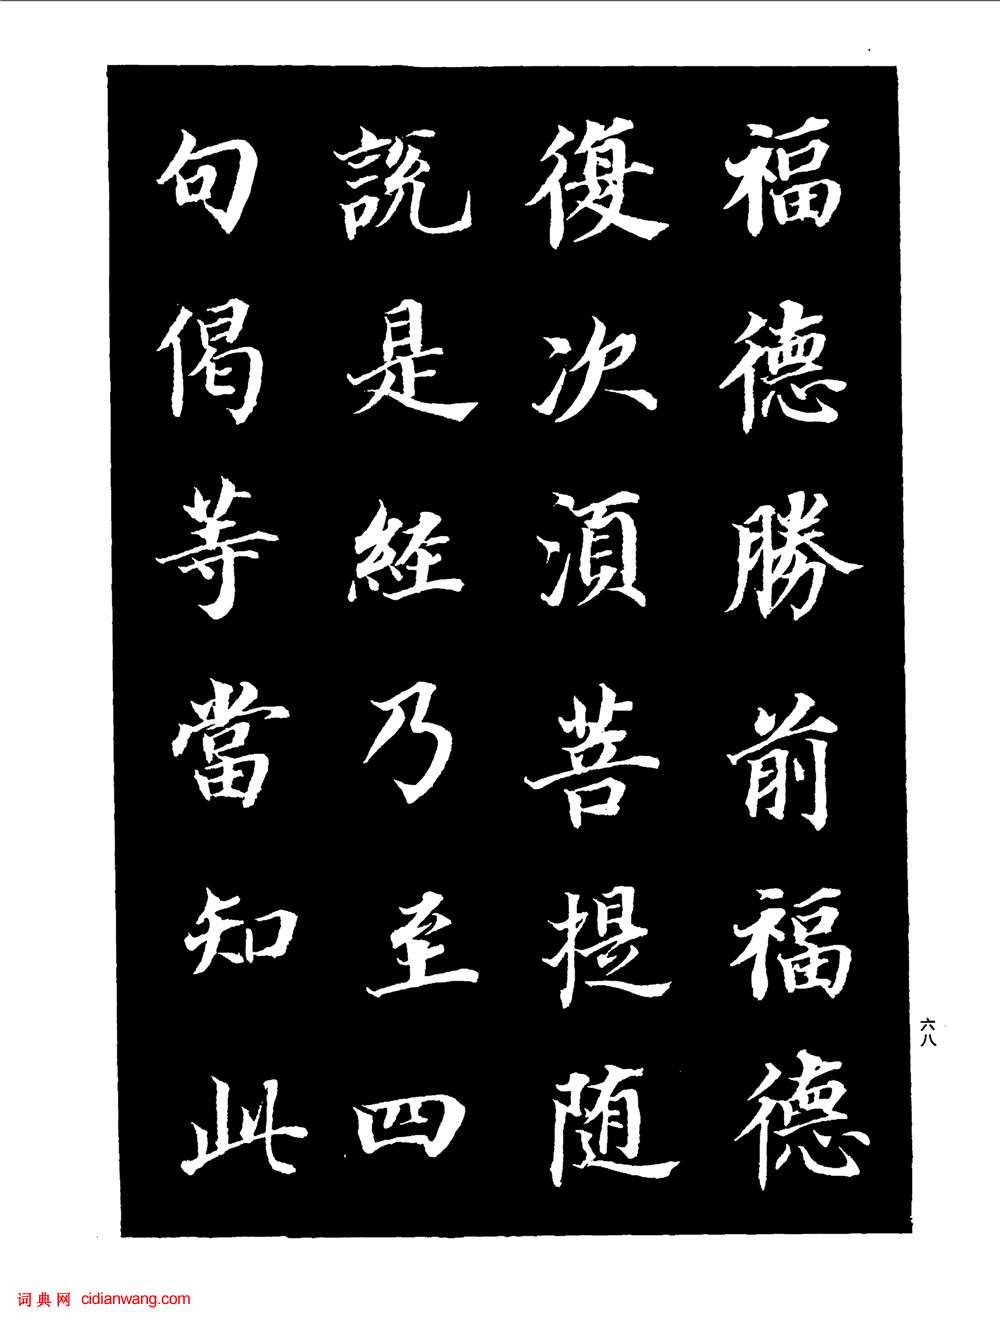 福德勝前福德
復次須菩提隨
說是經乃至四
句偈等當知此
六八
词典网 cidianwang.com